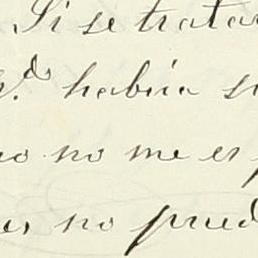 Si se tratar
V.d habia s
no no me es p
es no pued